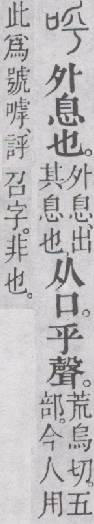 呼 外息也。外息、出其息也。从口。乎聲。荒烏切。五部。今人用
此爲號嘑、評召字。非也。